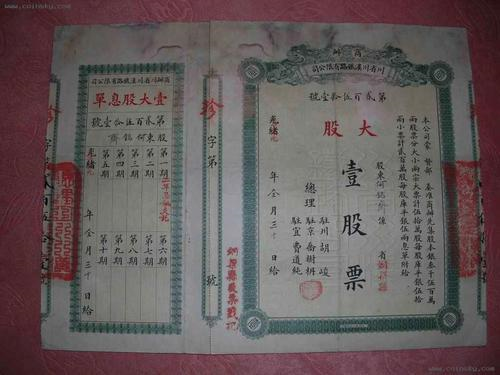 www.coinsky.com
商辦
川省川漢鐵路有限公司
第貳百伍拾壹號
大股
本公司蒙 督部 奏准商辦先集股本銀叁千伍百萬
兩股票分大小兩宗大票計伍拾萬每股庫平銀伍拾
兩小票計貳百萬每股庫平銀伍兩息單附給
股東何銘 係 省
壹股票
總理
駐川胡峻
駐京喬樹枏
駐宜費道純
光緒 年 月三十日給
字第 號
商辦川省川漢鐵路有限公司
壹大股息單
第貳百伍拾壹號
股東何銘
第一期 第六期
第二期 第七期
第三期 第八期
第四期 第九期
第五期 第十期
光緒 年 月三十日給
www.coinsky.com